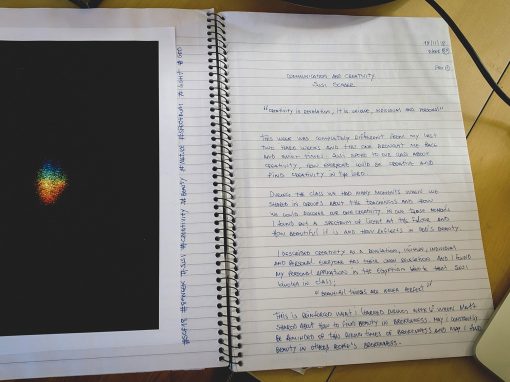 COMMUNICATION AND CREATIVITY
"CREATIVITY IS REVELATION, IT IS UNIQUE, INDIVIDUAL AND PERSONAL"
THIS WEEK WAS COMPLETELY DIFFERENT FROM MY LAST
TWO HARD WEEKS AND THIS ONE BROUGHT ME BACK
AND SWEET THINGS. SPOKE TO OUR CLASS ABOUT
CREATIVITY, HOW EVERYONE COULD BE CREATIVE AND
FIND CREATIVITY IN THE
DURING THE CLASS WE HAD MANY MOMENTS WHERE WE
SHARED IN GROUPS ABOUT THE TEACHINGS AND HOW
WE COULD DISCOVER OUR OWN CREATIVITY. IN ONE THOSE MOMENTS
I FOUND OUT A SPECTRUM OF LIGHT AT THE AND
HOW BEAUTIFUL IT IS AND HOW REFLECTS IN GOD'S BEAUTY.
I DESCRIBED CREATIVITY AS A REVELATION, INDIVIDUAL
AND PERSONAL. EVERYONE HAS THEIR OWN REVELATION. AND I FOUND
MY PERSONAL APPLICATION IN THE EGYPTIAN THAT
IN CLASS:
"BEAUTIFUL THINGS ARE NEVER PERFECT"
THIS IS REINFORCED WHAT I LEARNED DURING WEEK 6 WHEN
SHARED ABOUT HOW TO FIND BEAUTY IN BROKENNESS. MAY I CONSTANTLY
BE REMINDED OF THIS DURING TIMES OF BROKENNESS AND MAY I FIND
BEAUTY IN OTHERS PEOPLE'S BROKENNESS.
#CREATIVITY #BEAUTY #SPECTRUM #LIGHT #GOD